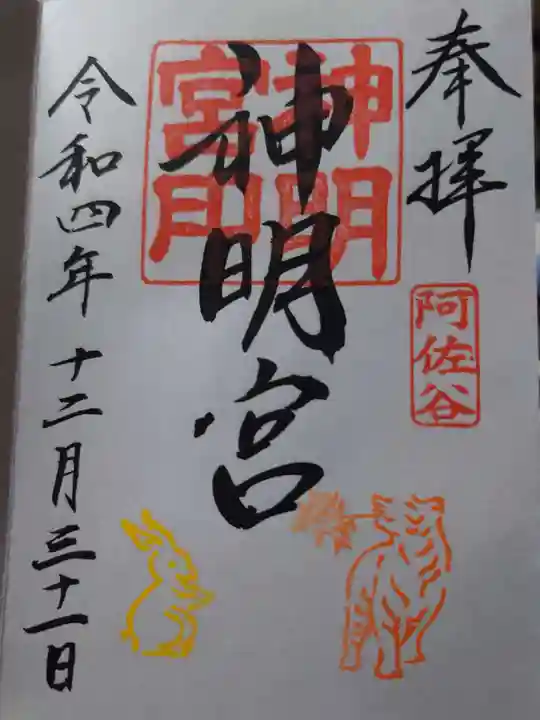 奉拝
阿佐谷
神明宮
神明宮印
令和四年 十二月三十一日